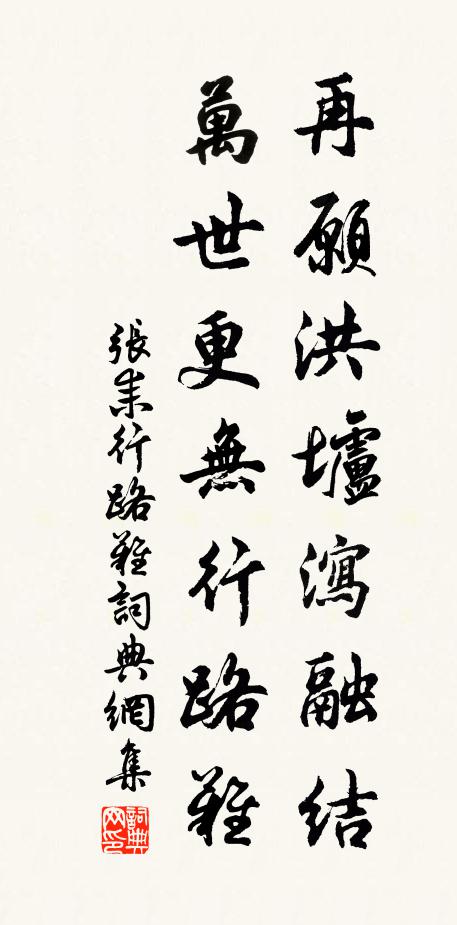 再願洪壚瀉融結
萬世更無行路難
張耒行路難詞典網集
詞典
网印